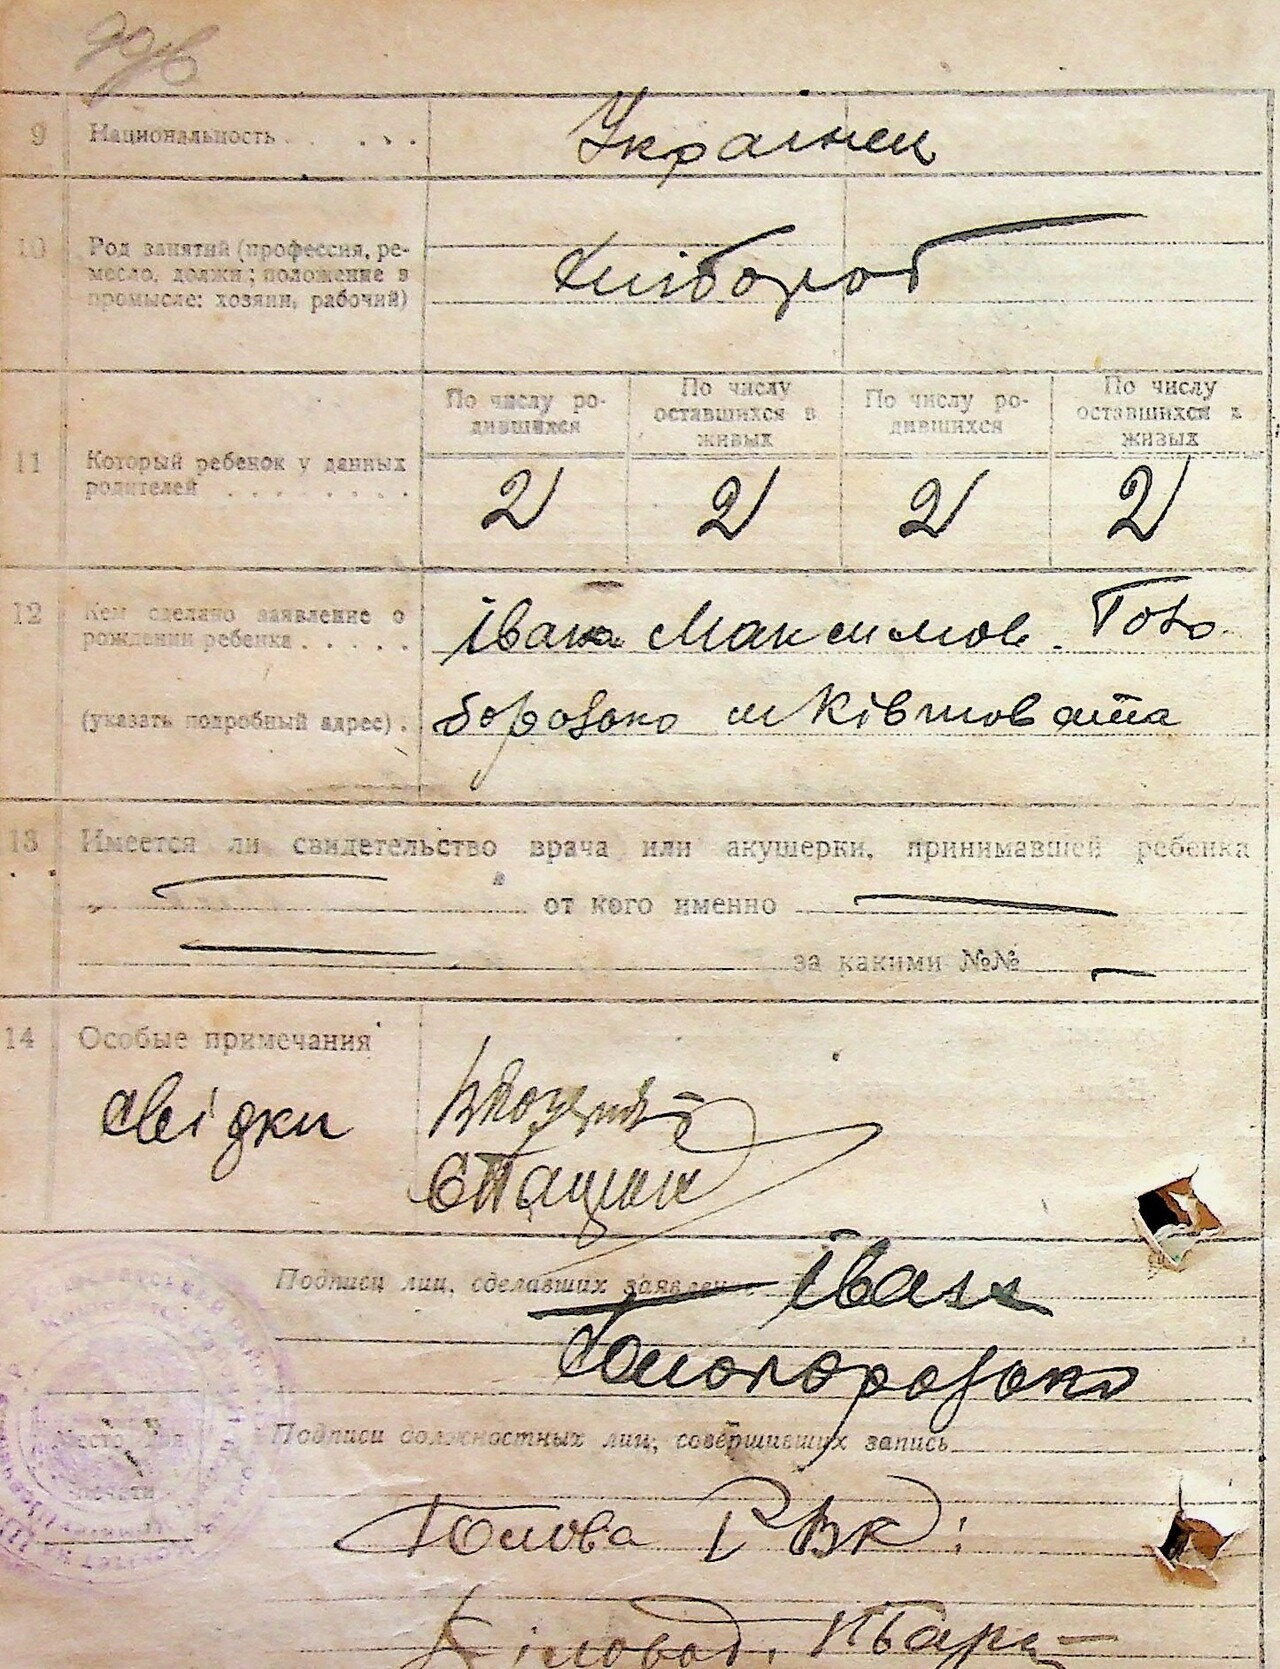 9 Национальность . . . . Украінец
10 Род занятий (профессия, ре-
месло, должн; положение в
промысле: хозяин, рабочий)
Хлібороб
По числу ро-
дившихся
По числу
оставшихся в
живых
По числу ро-
дившихся
По числу
оставшихся в
живых
11 Который ребенок у данных
родителей . . . . . . . .
2 2 2 2
12 Кем сделано заявление о
рождении ребенка . . . . .
Івана Максимов. Голо
(указать подробный адрес) .
бородько м Ківшовата
13 Имеется ли свидетельство врача или акушерки, принимавшей ребенка
от кого именно
за какими №№
14 Особые примечания
свідки
Подписи лиц, сделавших заявлен Іван
Голобородько
Подписи должностных лиц, совершивших запись
Место для
печати
Голова РВК: